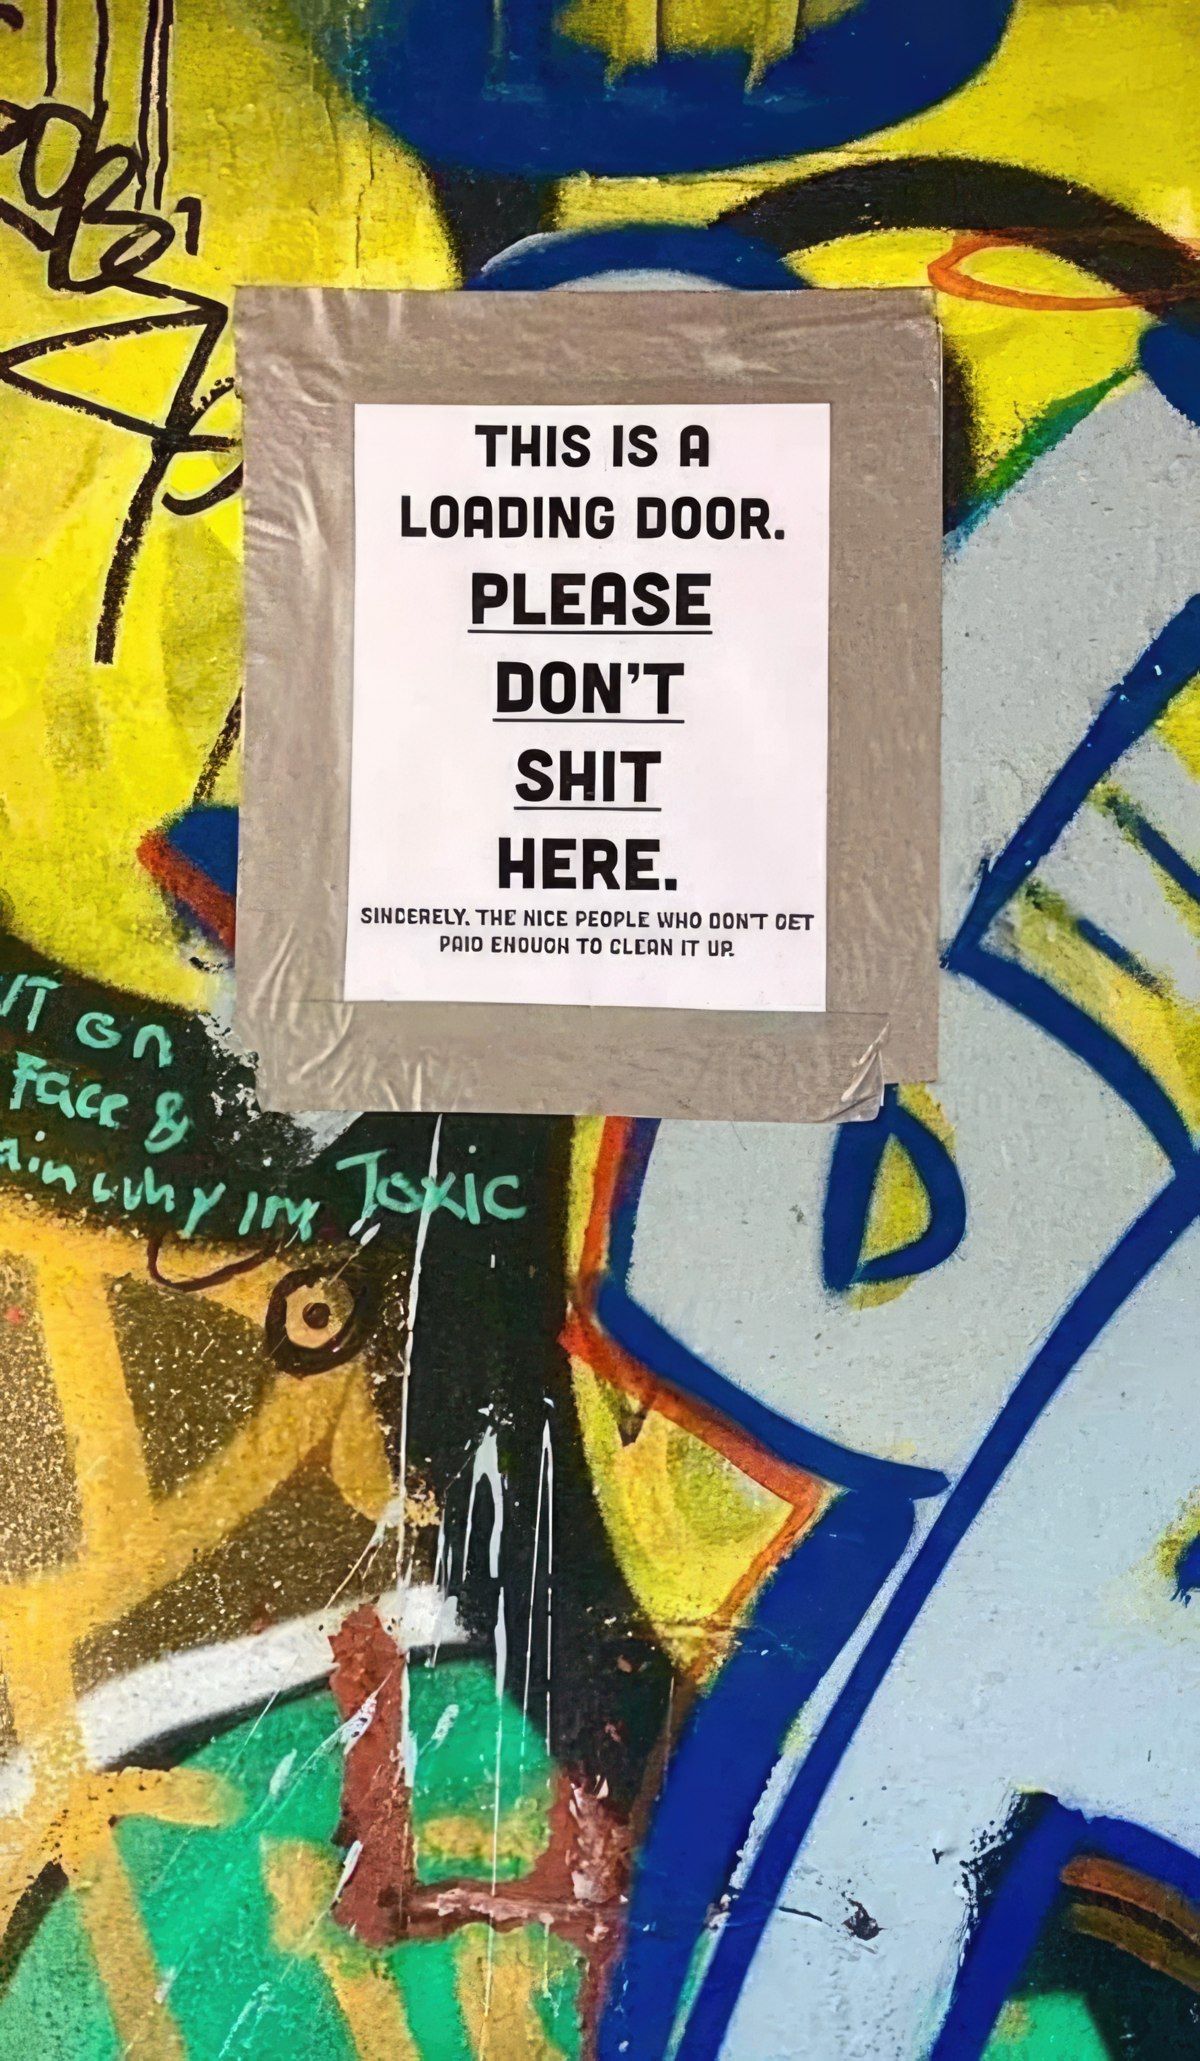 THIS IS A
LOADING DOOR.
PLEASE
DON'T
SHIT
HERE.
SINCERELY. THE NICE PEOPLE WHO DON'T GET
PAID ENOUGH TO CLEAN IT UP.
on
Face &
why im Toxic